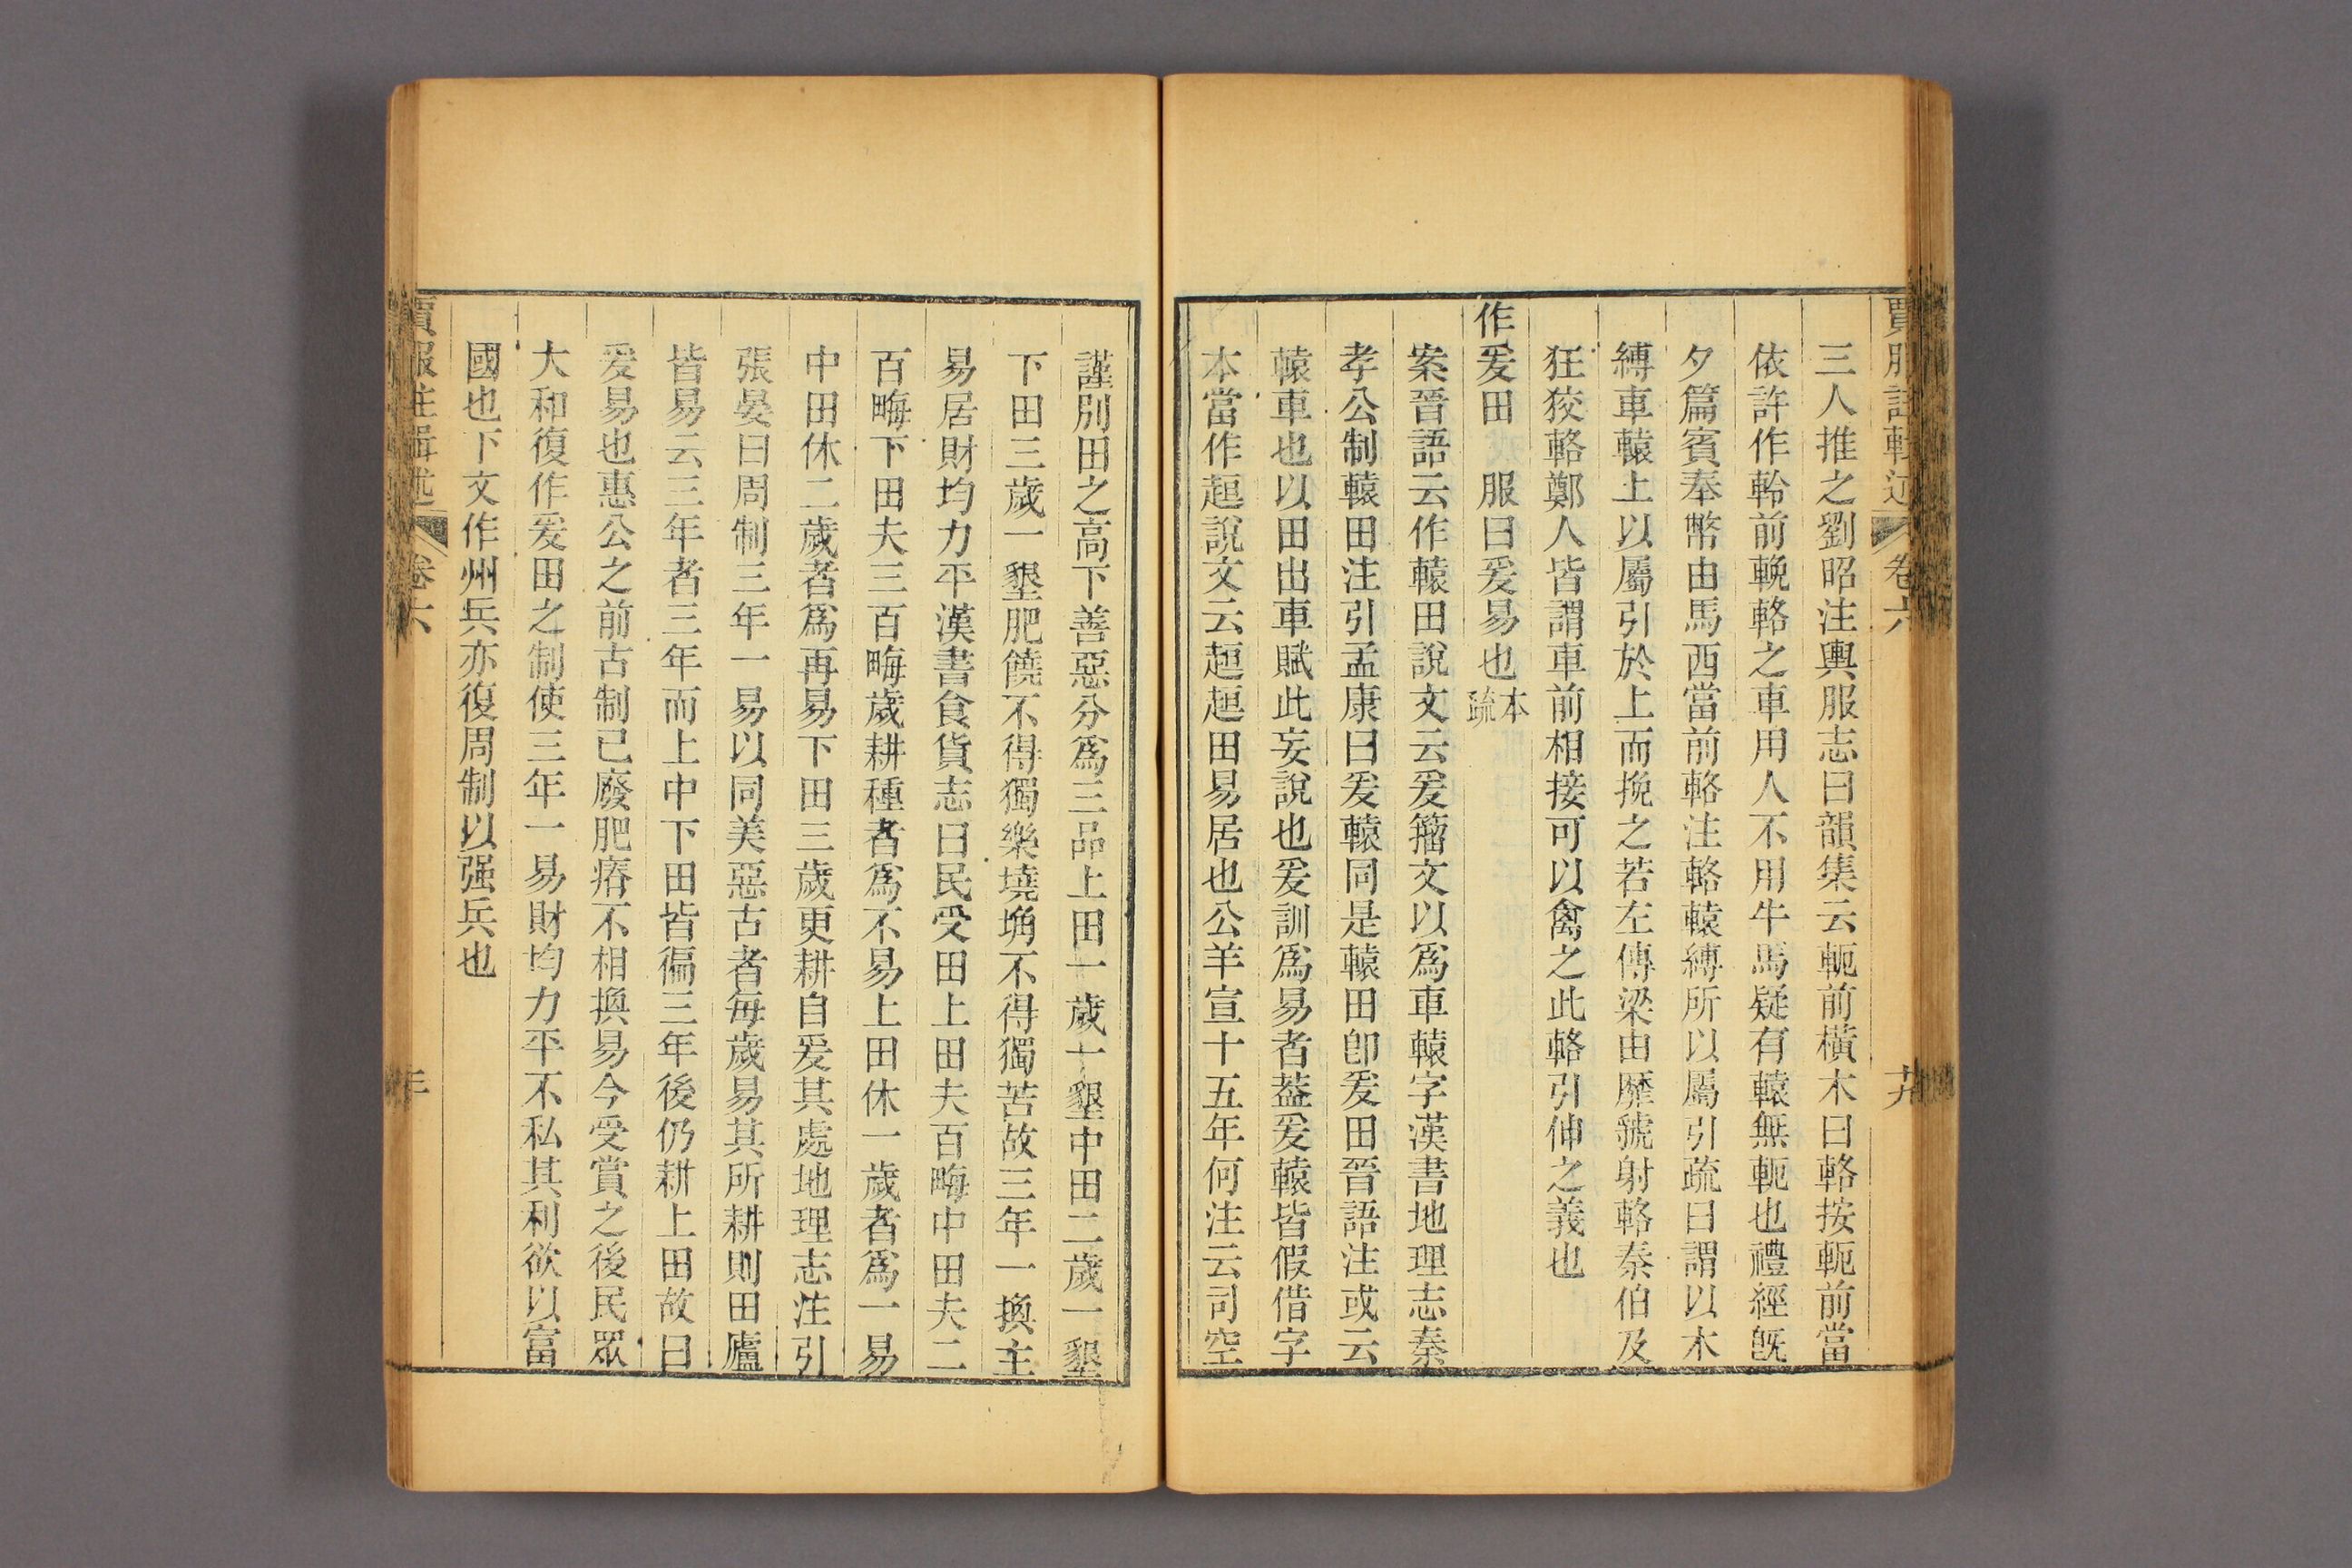 賈服註輯述 卷六 廿九
三人推之劉昭注輿服志曰韻集云軛前橫木曰輅按軛前當
依許作軨前輓輅之車用人不用牛馬疑有轅無軛也禮經旣
夕篇賓奉幣由馬西當前輅注輅轅縛所以屬引疏曰謂以木
縛車轅上以屬引於上而挽之若左傳梁由靡虢射輅秦伯及
狂狡輅鄭人皆謂車前相接可以禽之此輅引伸之義也
作爰田 服曰爰易也本疏
案晉語云作轅田說文云爰籀文以爲車轅字漢書地理志秦
孝公制轅田注引孟康曰爰轅同是轅田卽爰田晉語注或云
轅車也以田出車賦此妄說也爰訓爲易者葢爰轅皆假借字
本當作趄說文云趄趄田易居也公羊宣十五年何注云司空
謹別田之高下善惡分爲三品上田一歲一墾中田二歲一墾
下田三歲一墾肥饒不得獨樂墝埆不得獨苦故三年一換主
易居財均力平漢書食貨志曰民受田上田夫百畮中田夫二
百畮下田夫三百畮歲耕種者爲不易上田休一歲者爲一易
中田休二歲者爲再易下田三歲更耕自爰其處地理志注引
張晏曰周制三年一易以同美惡古者每歲易其所耕則田廬
皆易云三年者三年而上中下田皆徧三年後仍耕上田故曰
爰易也惠公之前古制已廢肥瘠不相換易今受賞之後民眾
大和復作爰田之制使三年一易財均力平不私其利欲以富
國也下文作州兵亦復周制以强兵也
賈服註輯述 卷六